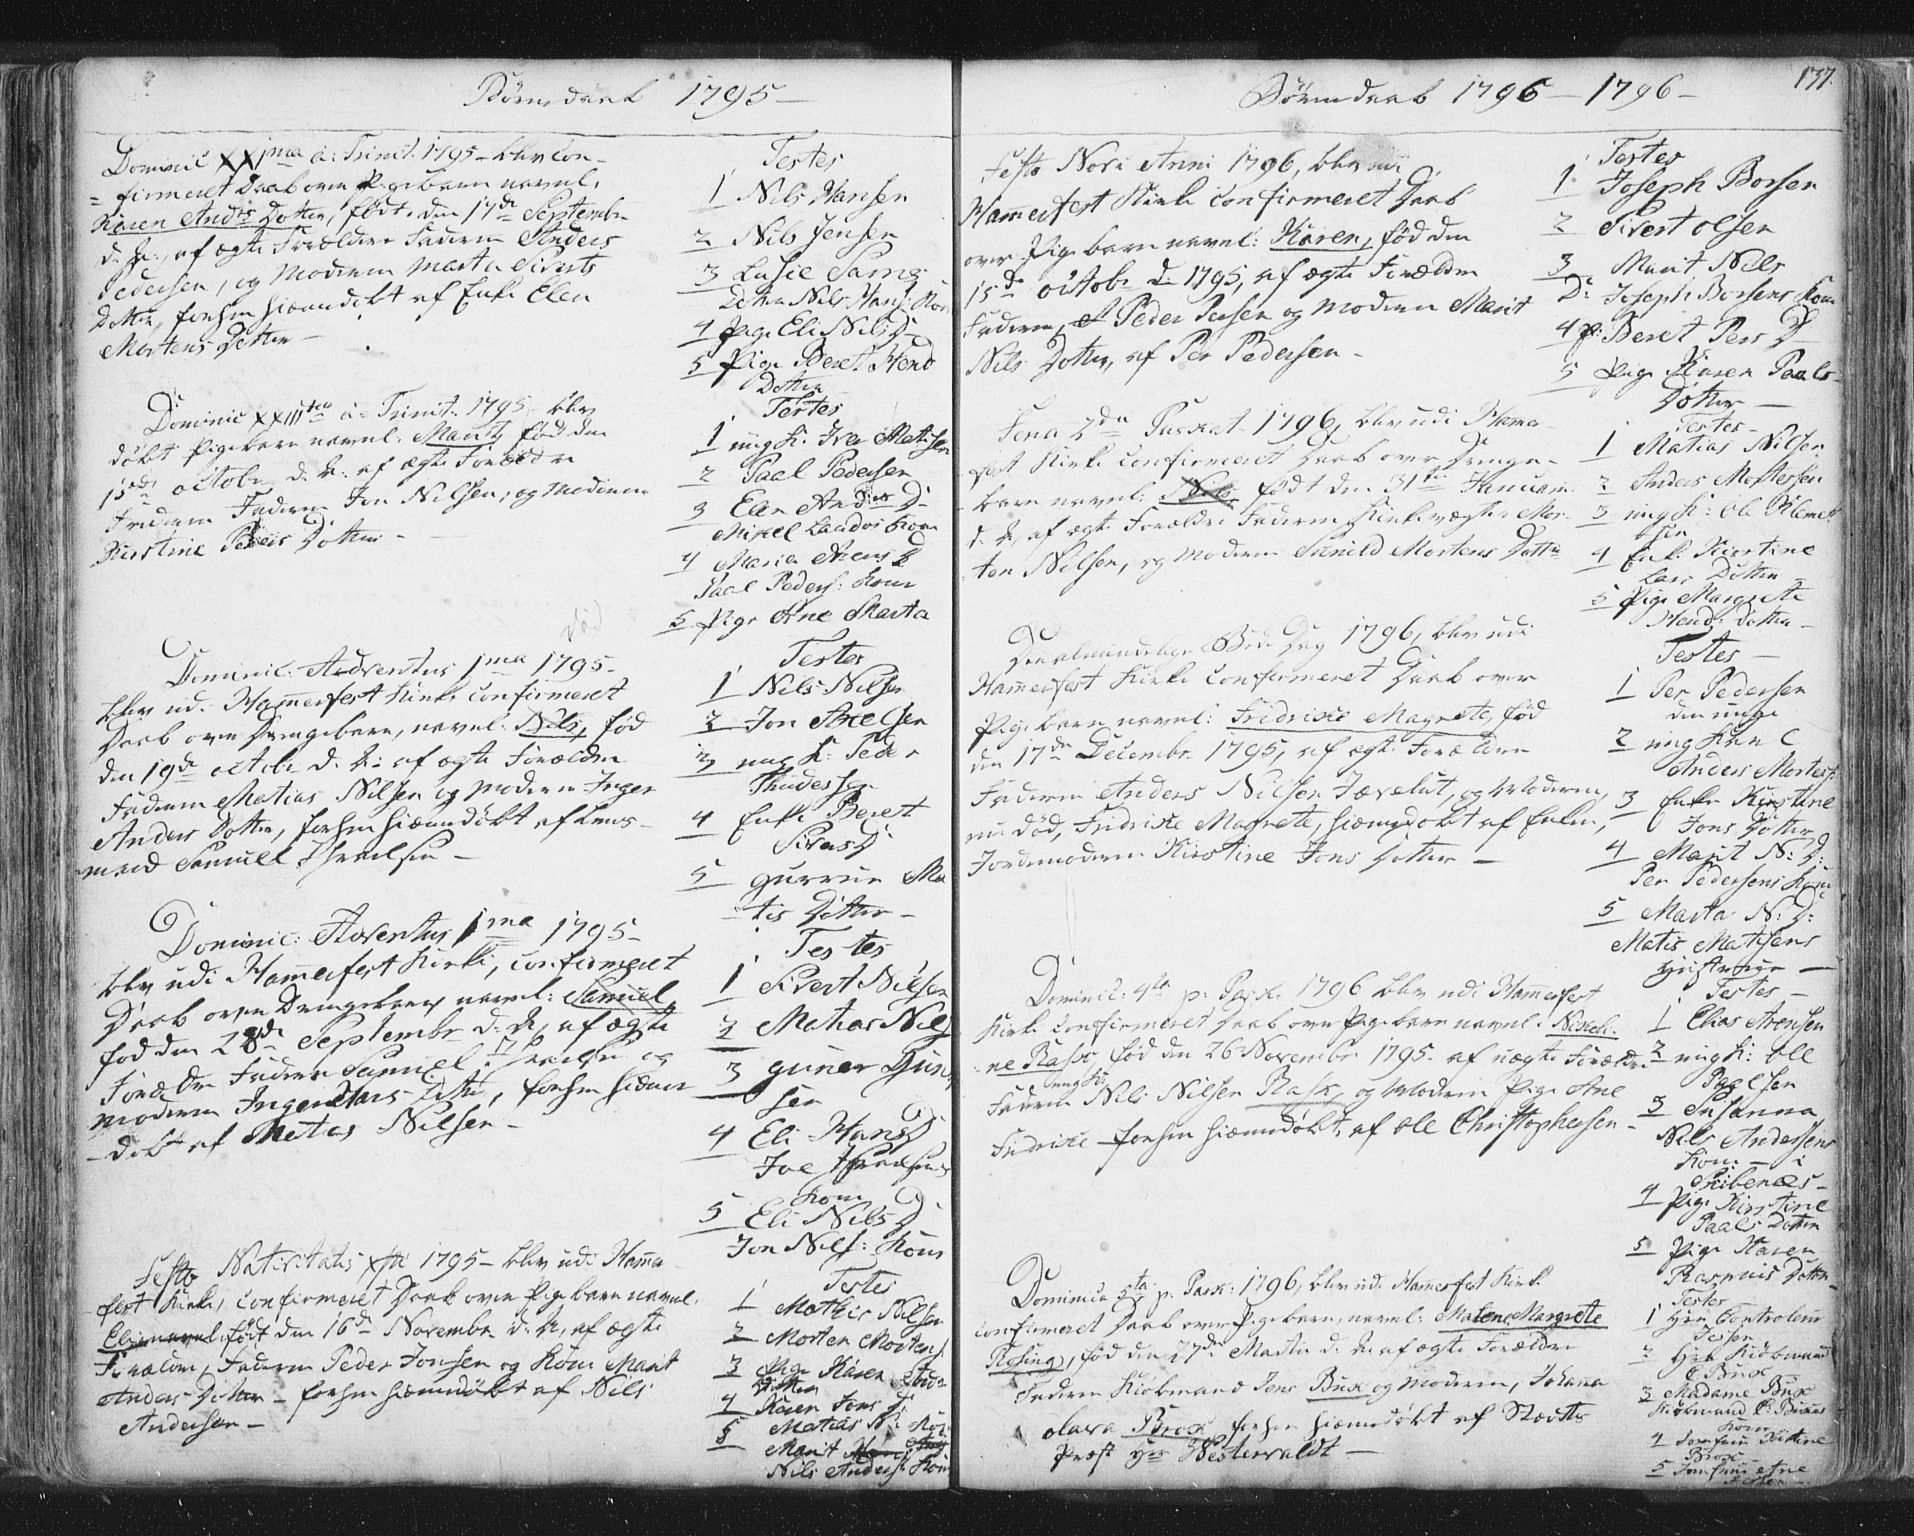 Børne daab 1795 —
Dominic XXIma a: Trinit. 1795 — blev Con-
= firmeret Daab over Pigebarn navnl.
Karen Anders Dotter, født den 17de Septembr
d. A., af ægte Forældre Faderen Anders
Pedersen, og Moderen Marta Siverts
Dotter, forhen hiemmedøbt af Enke Elen
Mortens Dotter —
Testes
1 Nils Hansen
2 Nils Jensen
3 Lusie Sams
Dotter Nils Hans: Kone
4 Pige Eli Nils D
5 Pige Beret Hend
Dotter
Dominic XXIIItia a: Trinit. 1795 — blev
døbt Pigebarn navnl. Marit, fød den
15de octobr d. A. af ægte Forældre
Faderen Jon Nilsen, og Moderen
Kirstine Peders Dotter —
Testes
1 ung k. Iver Matisen
2 Paal Pedersen
3 Elen Anders D
Mikel Kone
4 Maria D
Paal Peders: Kone
5 Pige Ane Marta
død
Dominic: Adventus 1ma 1795 —
blev udi Hammerfest Kirke Confirmeret
Daab over Drengebarn, navnl: Nils, fød
den 19de octobr d. A: af ægte Forældre
Faderen Matias Nilsen og Moderen Inger
Anders Dotter, forhen hiemmedøbt af Lens-
mand Samuel
Testes
1 Nils Nilsen
2 Jon Axelsen
3 ung k: Peder
4 Enke Beret
Sivers D
5 Ma
tis Dotter —
Dominic: Adventus 1ma 1795 —
blev udi Hammerfest Kirke, confirmeret
Daab over Drengebarn navnl: Samuel
fød den 28de Septembr d. A, af ægte
Forældre Faderen Samuel og
Moderen Inger Dotter, forhen hiemme
- døbt af Matias Nilsen —
Testes
1 Sivert Nilsen
2 Matias Nils
3 Guner Gun
sen
4 Eli Hans D
Kone
5 Eli Nils D
Jon Nils: Kone
Festo Nativitatis Xsti 1795 — blev udi Hamer
fest Kirke, confirmeret Daab over Pigebarn navnl.
født den 16de Novembr d. A, af ægte
Forældre, Faderen Peder Jonsen og Kone Marit
Anders Dotter — forhen hiemmedøbt af Nils
Andersen —
Testes
1 Mathis Nilsen
2 Morten Mortens
3 Pige Karen
Dotter
4 Karen Jons D
5 Matias N: Kone
Marit
Nils Anders: Kone
Børne daab 1796 — 1796 —
137.
Festo Novi Anni 1796, blev udi
Hammerfest Kirke Confirmeret Daab
over Pigebarn navnl: Karen, fød den
15de octobr d. 1795, af ægte Forældre
Faderen, Peder Persen og Moderen Marit
Nils Dotter, af Per Pedersen —
Testes
1 Joseph Borsen
2 Sivert olsen
3 Marit Nils
D: Joseph Borsens Kone
4 P: Beret Pers D
5 Pige Karen Paals
Dotter —
Feria 2da Paskat. 1796, blev udi Hamer
fest Kirke Confirmeret Daab over Drenge-
barn navnl: Nils, født den 31te Januarii
d. A, af ægte Forældre Faderen Kirkevægter Mor-
ten Nilsen, og Moderen Sunild Mortens Dotter
Testes
1 Matias Nilsen
2 Anders Mortersen
3 ung k: ole
4 Enke Kirstine
Lars Dotter
5 Pige Margrete
Hend: Dotter —
Den almindelige Bede Dag 1796, blev udi
Hammerfest Kirke Confirmeret Daab over
Pigebarn navnl: Fridrike Magrete, fød
den 17de Decembr 1795, af ægte Forældre
Faderen Anders Nilsen, og Moderen,
nu død, Fridrike Magrete, hiemmedøbt af Enke,
Jordemoderen Kirstine Jons Dotter —
Testes —
1 Per Pedersen
den unge
2 ung Karl
Anders Mortens:
3 Enke Kirstine
Jons Dotter
4 Marit N: D:
Per Pedersens Kone
5 Marta N: D:
Matis Matisens
Hustrue —
Dominic: 4ta p: Pask: 1796 blev udi Hammerfest
Kirke Confirmeret Daab over Pigebarn navnl:
ne Rask, fød den 26 Novembr 1795. af uægte Forældre
ung K.
Faderen Nils Nilsen Rask, og Moderen Pige Ane
Fridrike — forhen hiemmedøbt, af ole Christophersen —
Testes —
1 Elias Arensen
2 ung k: ole
Paalsen
3 Susanna
Nils Andersens
Kone — i
4 Pige Kirstine
Paals Dotter
5 Pige Karen
Rasmus Dotter
Dominica 5ta p. Pask: 1796, blev udi Hamerfest Kirke
confirmeret Daab over Pigebarn, navnl: Malene Margrete
Rosing, fød den 27de Martii d. A. af ægte Forældre
Faderen Kiøbmand Jens Buck og Moderen, Johana
olava Brock, forhen hiemmedøbt af Stædets
Præst Hr Westervaldt —
Testes
1 Hr Controleur
Jessen
2 Hr Kiøbmand
C Buck
3 Madame Buck
Kiøbmand C: Bucks
Kone
4 Jomfrue Kirstine
Brock
5 Jomfrue Ane